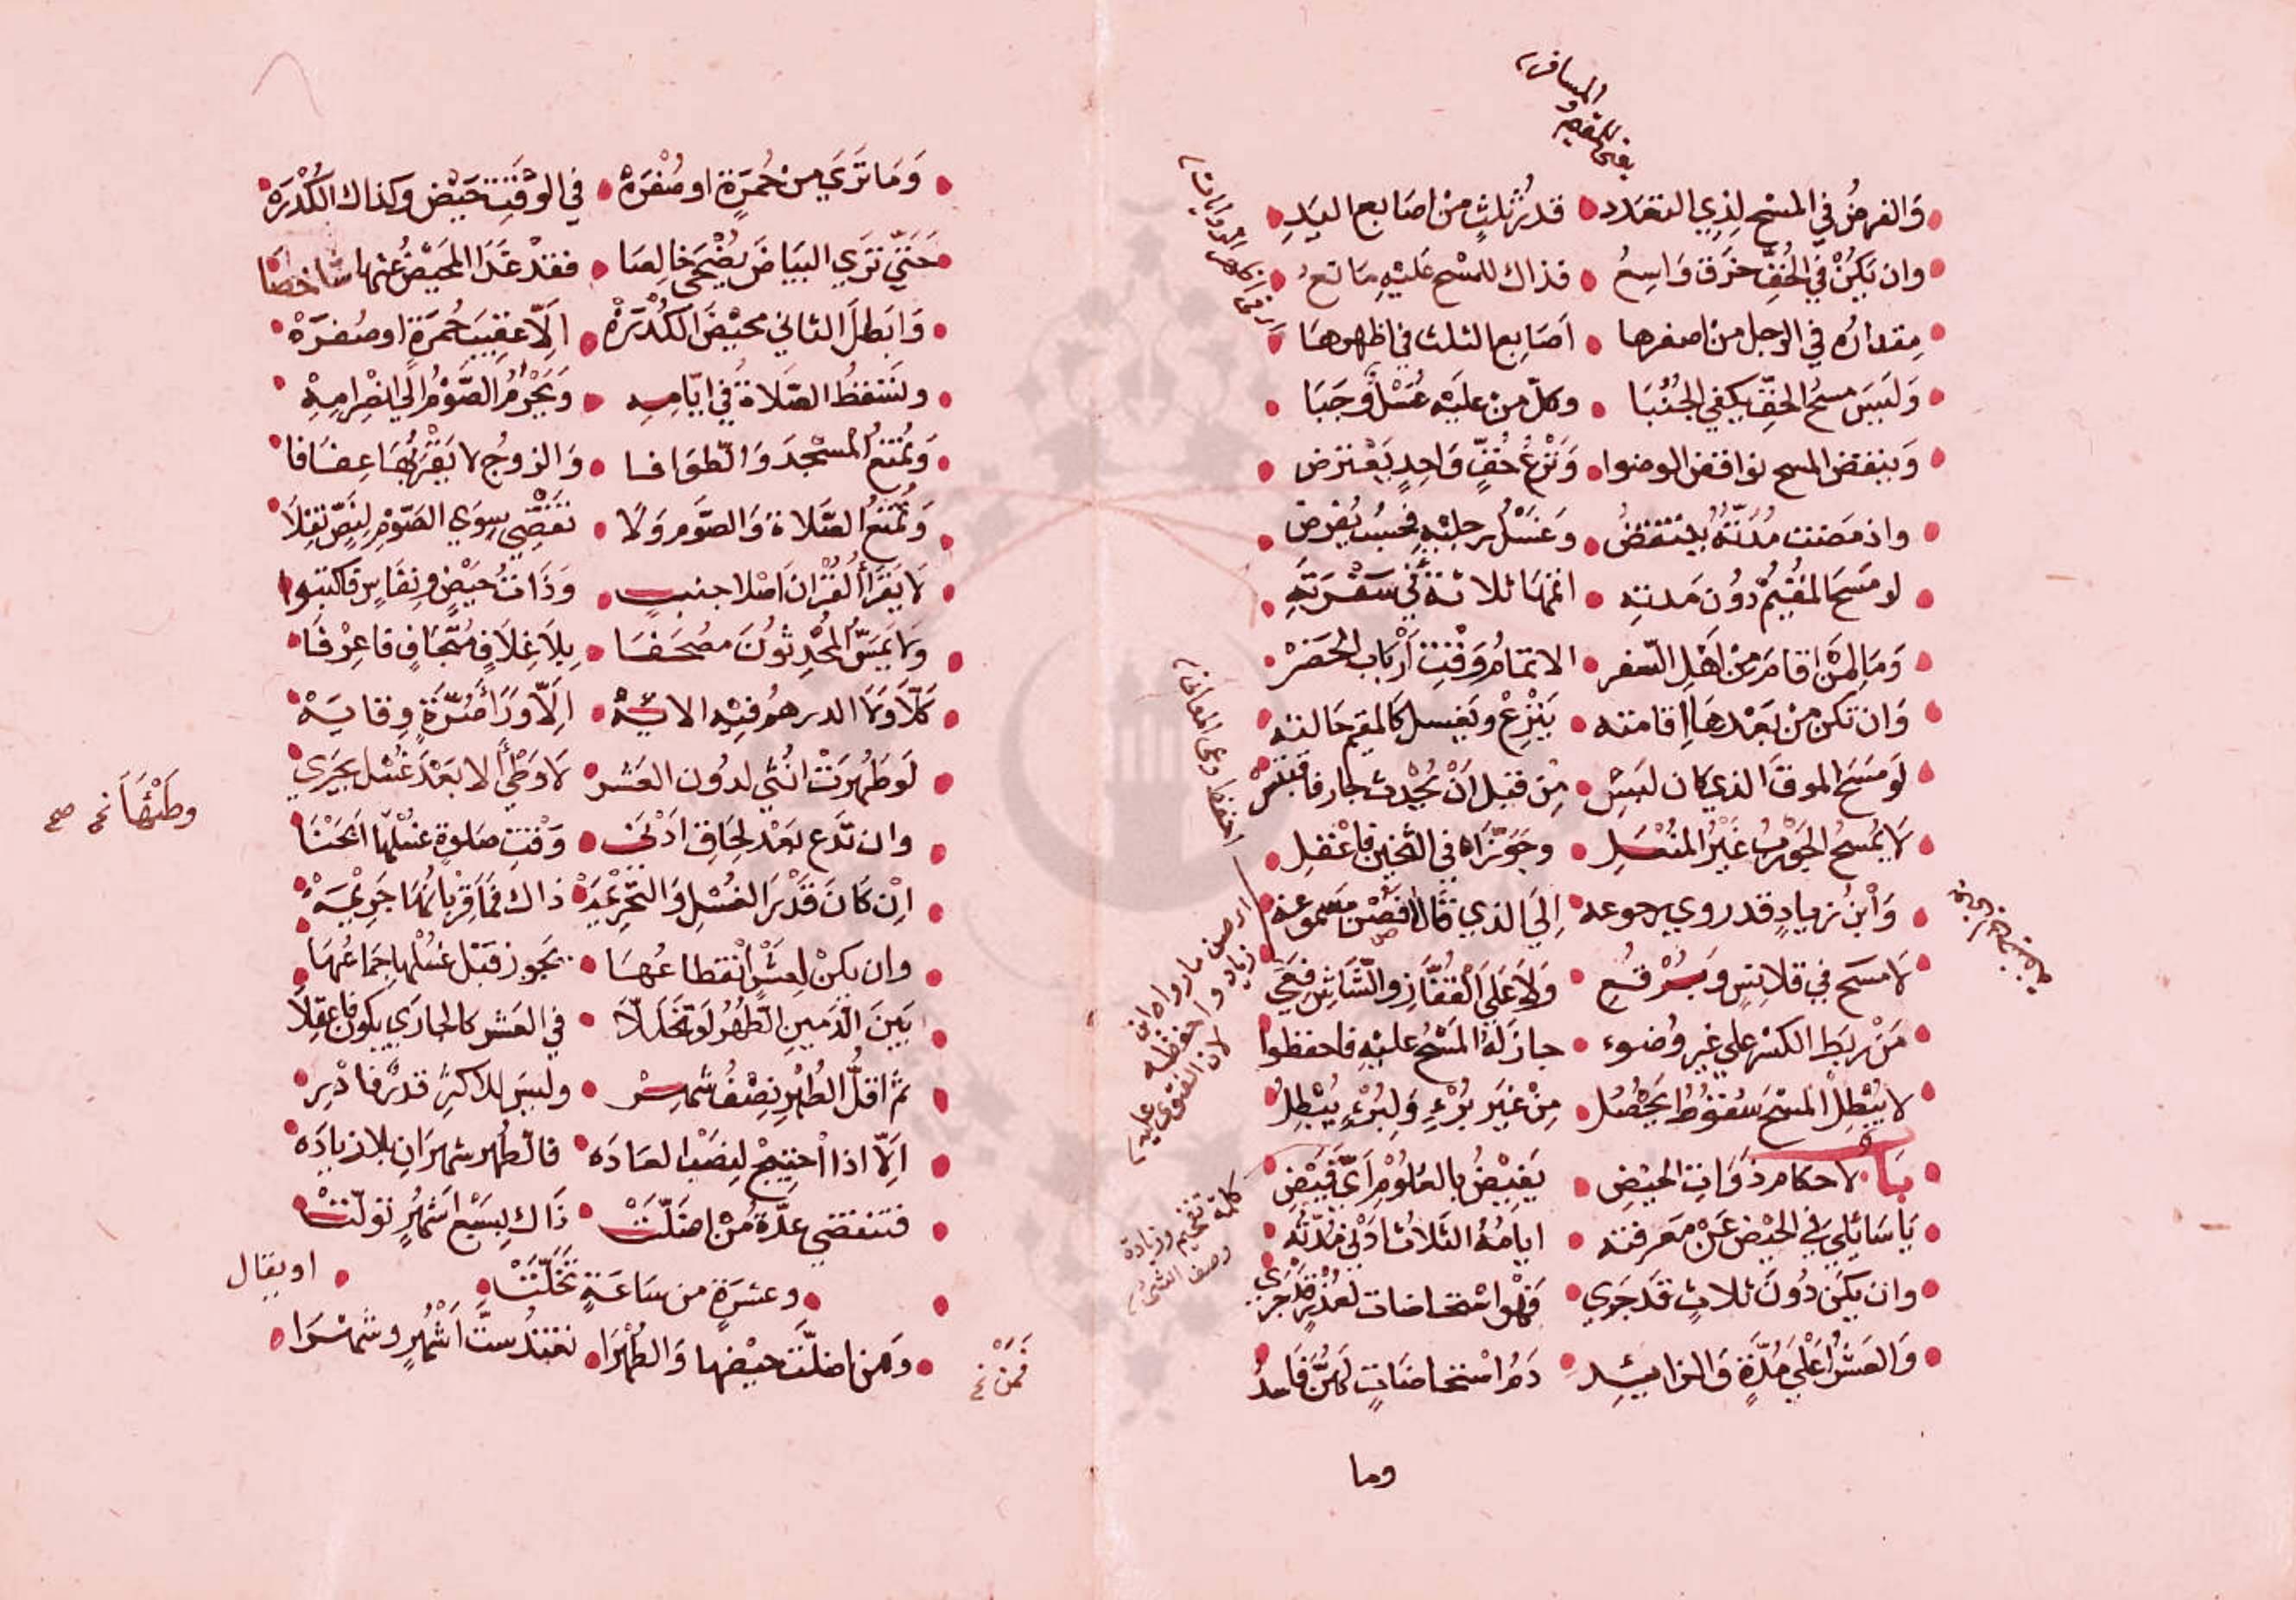 وَالفرضُ في المسْحِ لِذِي التعَدّدِ قدرُ ثلثٍ منْ اصَابع اليَدِ
وان يَكُنْ في الخُفِّ خرَق وَاسِعُ فذاك للمسْحِ عَليْهِ مَانعُ
مِقدارُه في الرجل من اصغرها اَصَابِع الثلث في اظهرهَا
وَليَسَ مسحُ الخفِّ يكفي الجُنُبَا وكلّ منْ عليَه غُسْلٌ وَجَبَا
وَينقض المسح نواقض الوضوا وَنَزْعُ خُفٍّ وَاحِدٍ يَعْترض
واذ مَضت مُدّتُهُ ينتقضُ وَغسْلُ رجليْهِ فحسْبُ يفرض
لو مَسَحَ المُقيمُ دُون مَدتِه اتمّهَا ثلاثة في سَفْرَتِهِ
وَمَا لِمنْ اقامَ منْ اَهْلِ السّفر الا تمامُ وَقْتِ اَرْبَاب الحَضَرْ
وَان تكن منْ بَعْدهَا اِقامته يَنْزِعْ ويَغسل كالمقيم حَالته
لَو مَسَحَ الموقَ الذي كان لَبِسْ مِن قبل اَنْ يُحْدث جَاز فاقتبسْ
لَا يُمسَحُ الجَوْربُ غَيْرُ المنْعَلِ وجَوّزَاه في الثخين فاعْقِلِ
وَابْنُ زيادٍ قد روي رجوعه اِلَي الذي قالا فصُن مَسموعه
لَا مسَح في قلانسٍ وَبُرْقعِ وَلَا عَلَي القُفّازِ والشّاشِ فعَي
مَنْ ربَط الكسْر علي غيرِ وُضوء جاز لهُ المسْحُ عليْهِ فاحفظوا
لا يُبْطِلُ المسْحَ سُقوْطٌ يَحْصُل مِنْ غَيرِ بُرْءٍ وَلِبُرْءٍ يُبْطِلُ
بَاب لاحكام ذوَاتِ الحيْضِ يَفيْضُ بالعُلوْمِ اَيَّ فَيْضِ
يَا سَائلِي في الحيْض عَنْ مَعرفته ايامُهُ الثلاثُ ادْني مُدّتُه
وان يكنْ دُونَ ثلاثٍ قد جَرَي فَهْوَ اسْتحاضات لعُذْرٍ قدْ جَرَي
وَالعَشْرُ اَعْلَي مُدّةٍ وَالزايِدِ دَمُ اسْتحاضَاتٍ لَهنَّ فَاسِدُ
وما
يعني للمقيم والمسافر
احفظ وعي المعاني
ارض ما رواه ابن
زياد واحفظه
لان الفتوى عليه
كلمة تفخيم وزيادة
وصف الشيء
وَمَا تَرَي مِنْ حُمرَةٍ او صُفرَهْ في الوَقْتِ حَيْض وكذاك الكُدْرَهْ
حَتّي تَرَي البَيَاضَ يُضْحِي خَالِصَا فقدْ غَدَا المَحيْضُ عنها شاخصَا
وَابَطلَ الثاني محَيْضَ الكُدْرَهْ اِلّا عقيبَ حُمرَةٍ او صُفرَهْ
ولتسقطُ الصّلاة في ايّامِه وَيَحْرُمُ الصَّوْمُ الي انْصِرَامِهْ
وَتُمْنَعُ المسْجدَ وَالطّوَافا وَالزوجُ لا يَقْربُهَا عِفَافا
وَتُمْنَعُ الصّلاةَ وَالصَّومَ وَلا تَقْضِي سِوَي الصَّوْمِ لِنَصٍّ نُقِلَا
لَا يَقرَأُ القُرْانَ اَصْلا جنبُ وَذَاتُ حَيْضٍ ونفَاسٍ فاكتبوا
وَلا يَمَسُّ المُحْدِثوْنَ مصْحَفَا بِلَا غِلَافٍ مُتَجَافٍ فاعْرِفَا
كَلّا وَلَا الدرهمُ فيْهِ الايَهْ اِلّا وَرَا صُرَّةٍ وِقايَهْ
لَو طَهُرَتْ انُثي لدوُن العَشرْ لَا وَطْيَ الا بَعْدَ غُسْل يجَري
وان تدَع بَعْد لِحَاقٍ ادْنَي وَقْتِ صَلوةٍ غسْلَهَا اَبَحْنَا
اِنْ كَانَ قَدْرَ الغُسْلِ وَالتّحْرِيمَهْ ذاك فمَا قُرْبانُهَا جَرِيْمَهْ
وان يكنْ لِعَشْرٍ انْقطاعُهَا يجَوز قَبْل غسْلِها جِمَاعُهَا
بَينَ الدّمينِ الطّهْرُ لَو تَخَلّلَا في العَشرِ كالجاري يكون فاعقِلَا
ثمّ اقلُّ الطُهْرِ نِصْفُ شهرِ وليسَ للاكثرِ قدرٌ فادْرِ
اِلّا اذا احْتِيجَ لِنصْبِ العَادَه فالطّهر شهرَانِ بلا زيادَه
فتنقضي عدّةُ مَنْ اضَلّتْ ذَاك بِسَبْعِ اشْهُرٍ تولّتْ
وعشرَةٍ من سَاعَةٍ تَخَلّتْ او يقال
وَمن اضلّت حيْضها وَالطُهرَا تعتدُ ستَّ اشْهُرٍ وشهْرَا
وطئها نخ صح
فمَنْ نخ